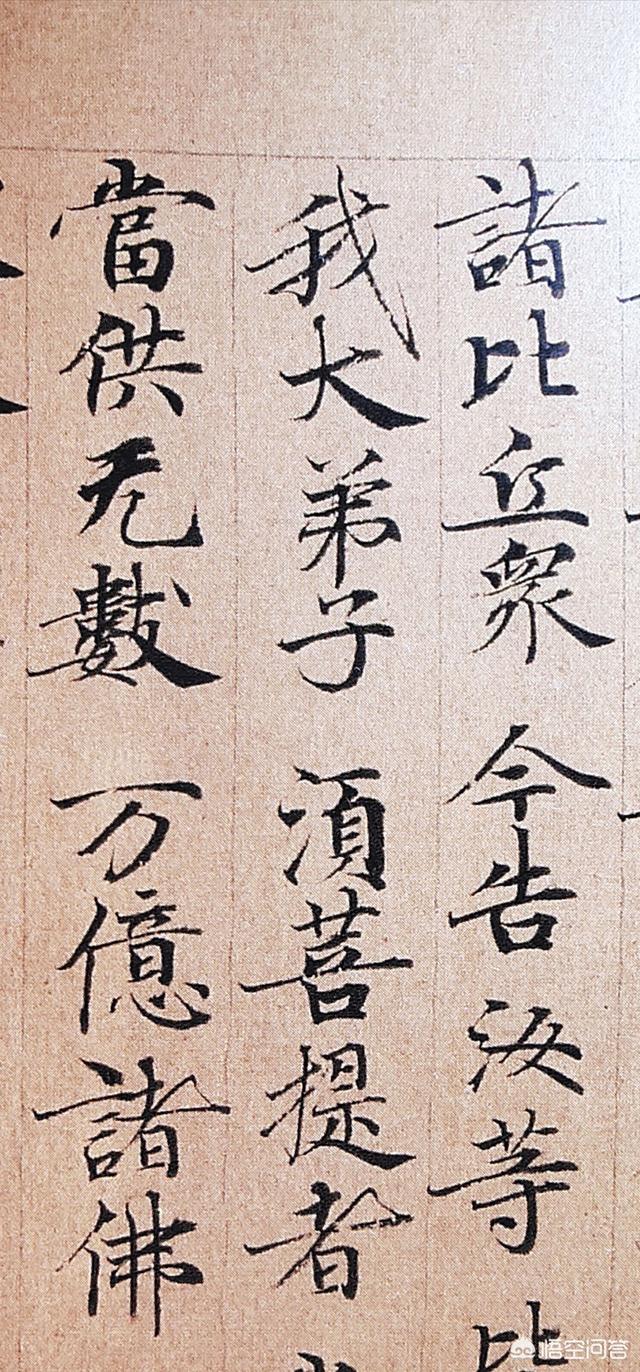 諸比丘眾今告汝等比
我大弟子須菩提者
當供无數万億諸佛
悟空问答